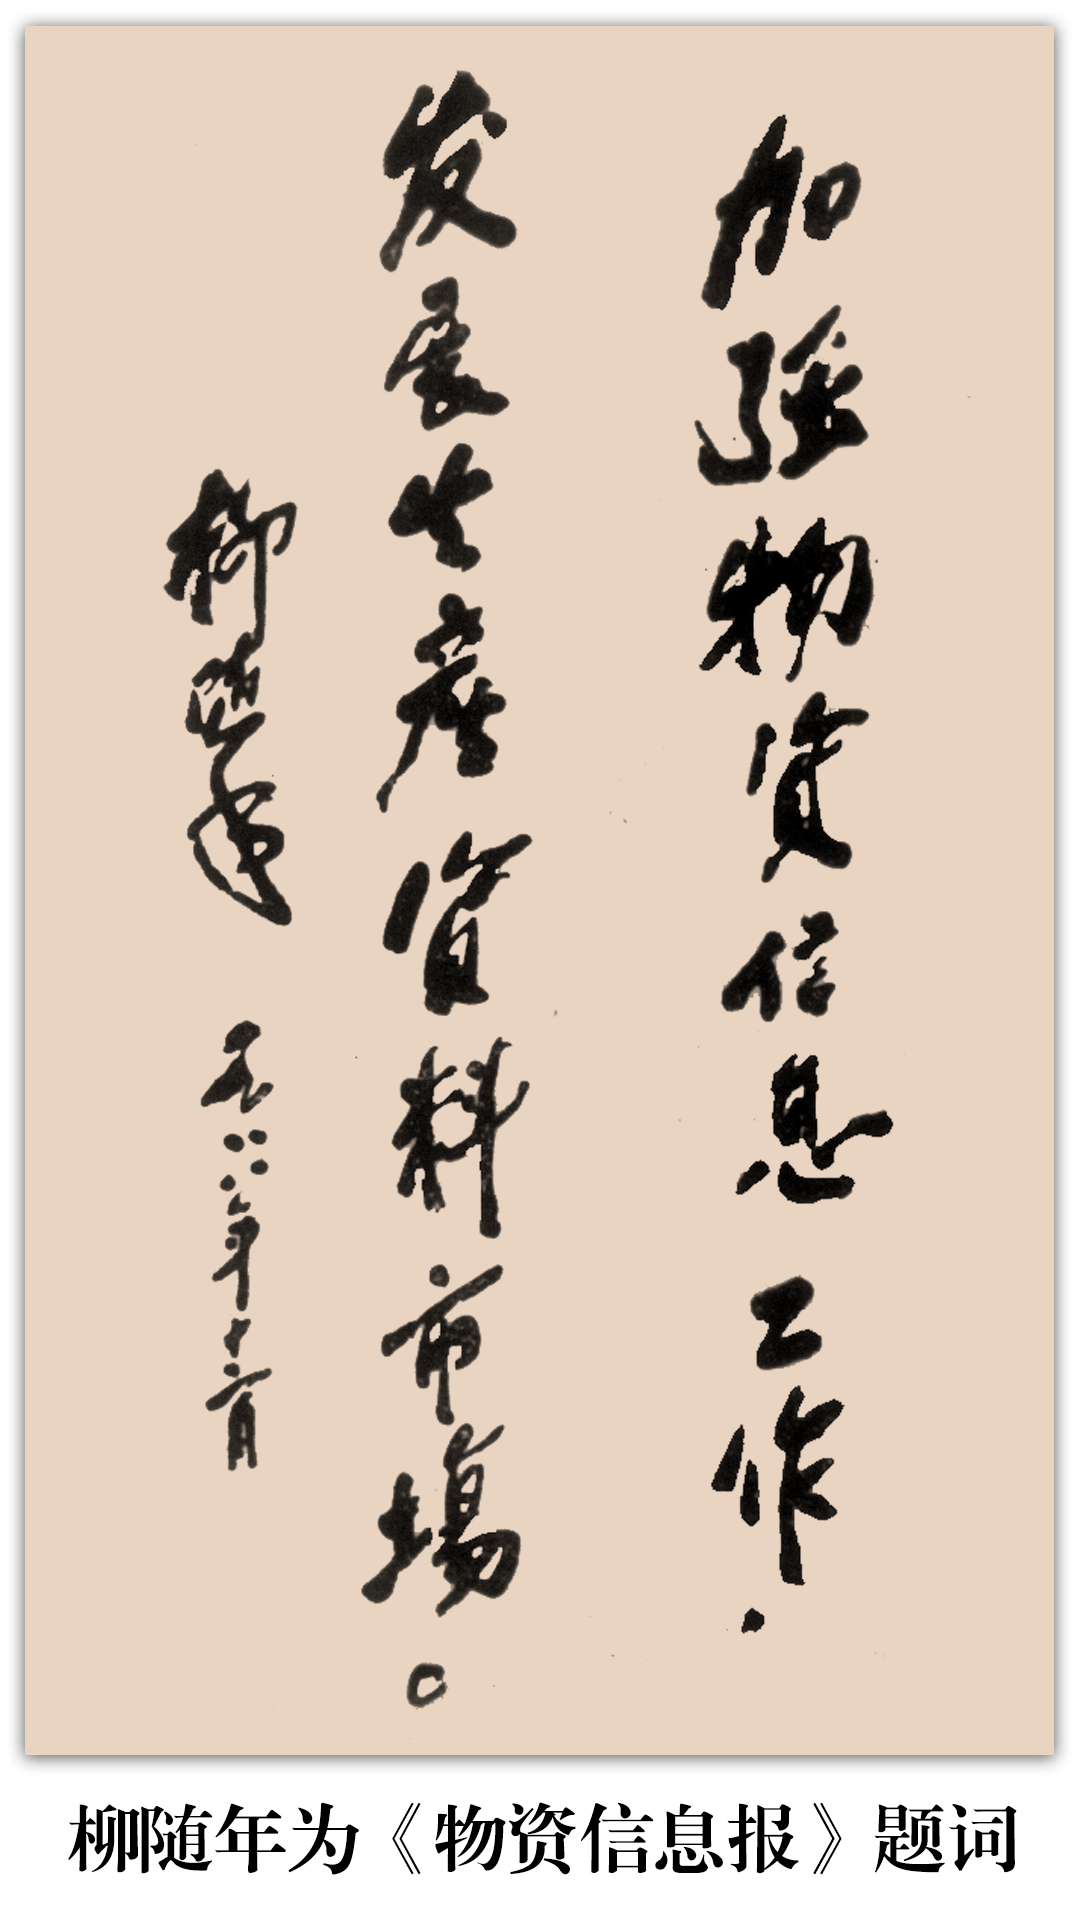 加强物资信息工作，
发展生產资料市場。
柳随年 一九八八年十二月
柳随年为《物资信息报》题词